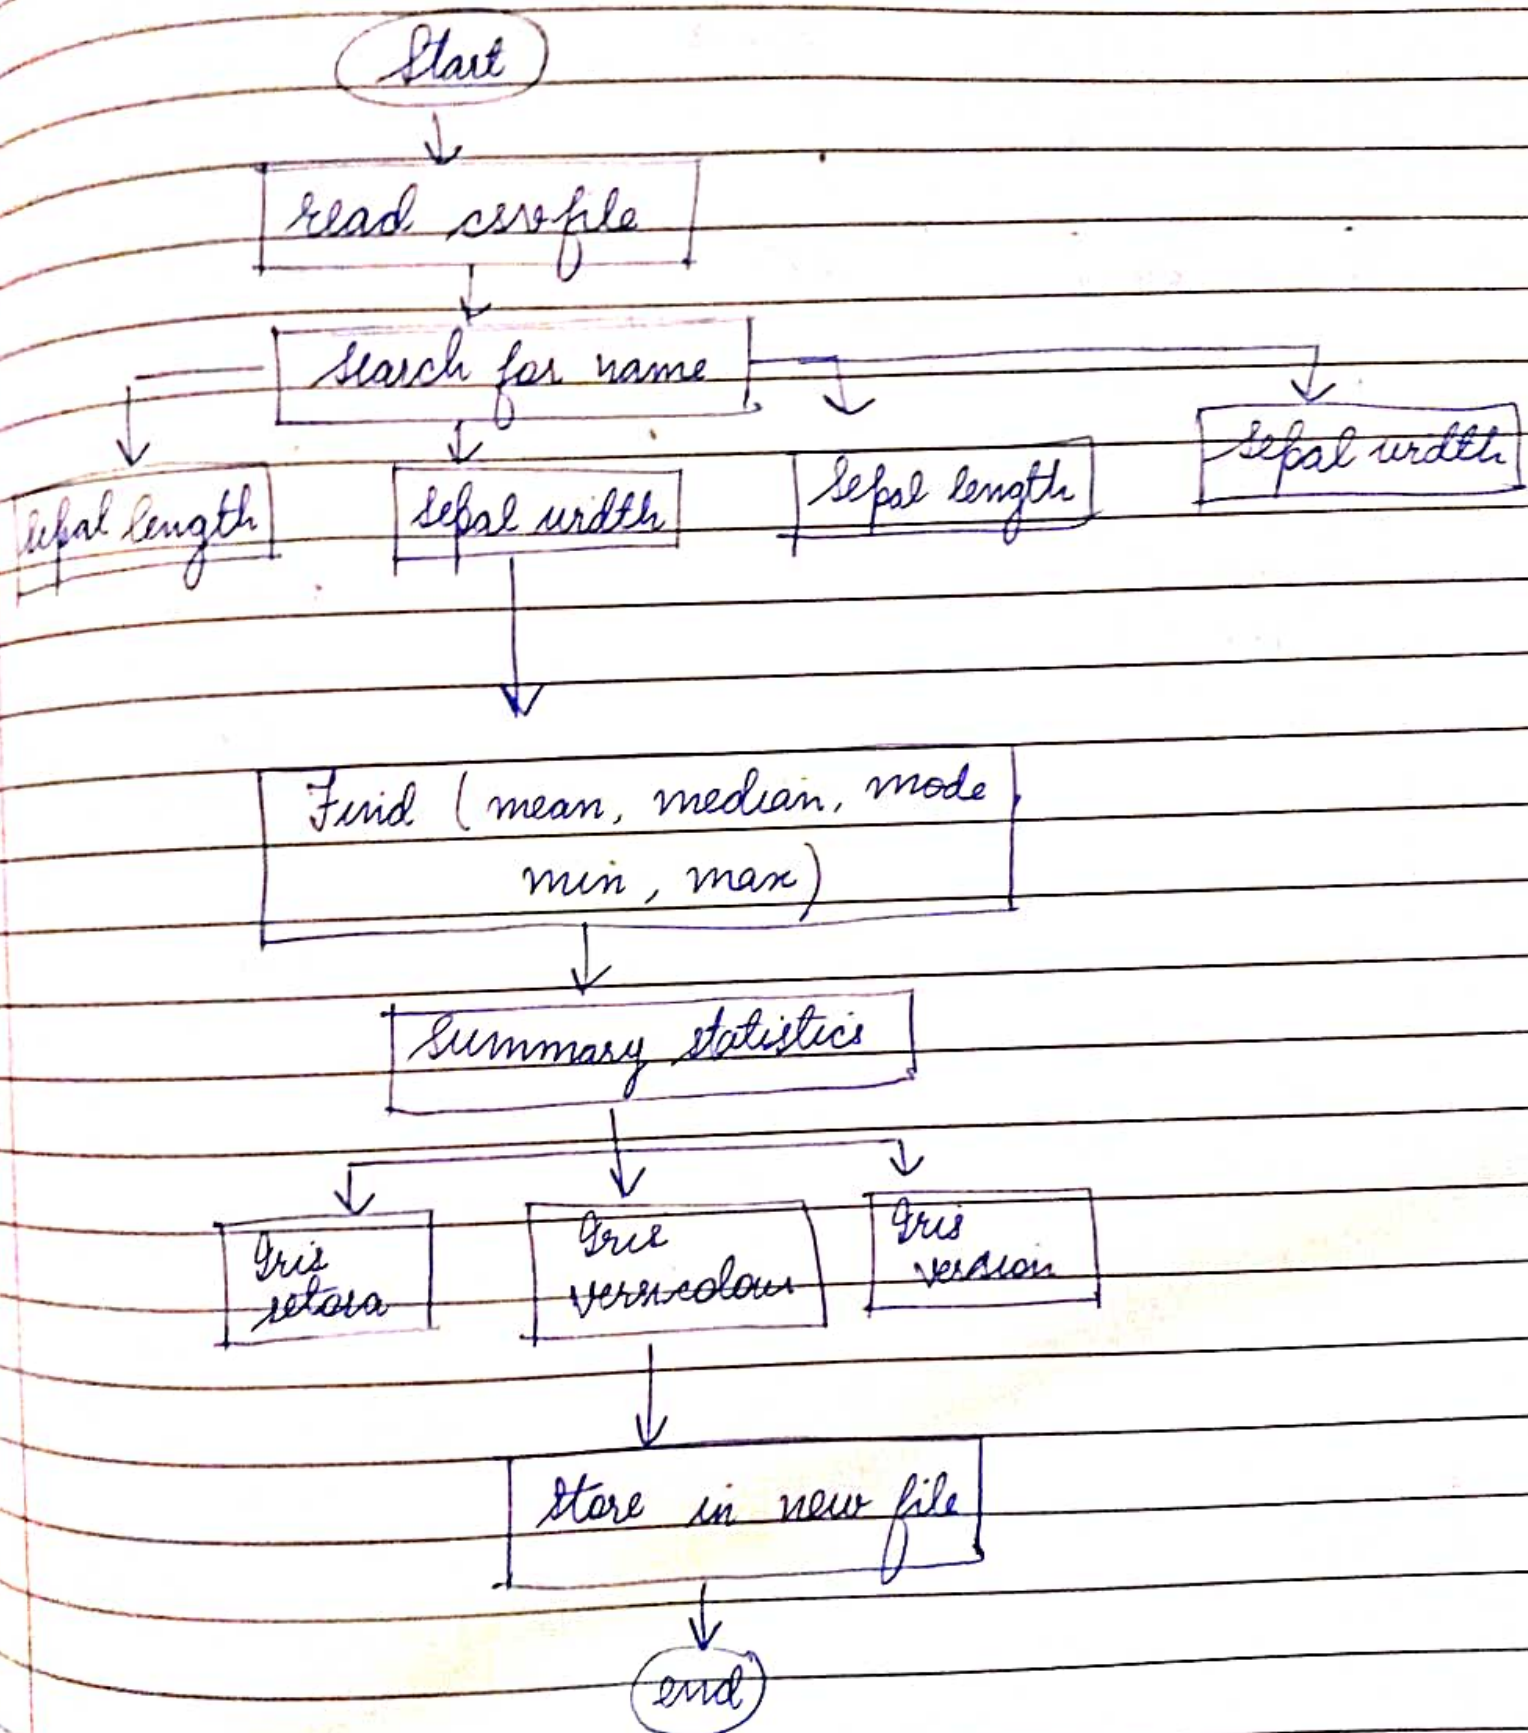 Start
read csv file
Search for name
sepal length
sepal width
sepal length
sepal width
Find (mean, median, mode
min, max)
Summary statistics
Iris
setosa
Iris
versicolour
Iris
version
Store in new file
end